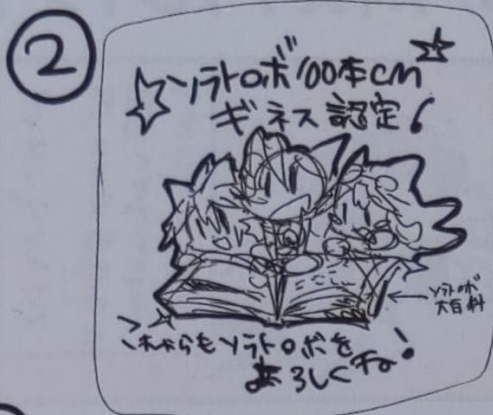 ②
ソラトロボ100本CM
ギネス認定!
←ソラトロボ
大百科
これからもソラトロボを
よろしくね!